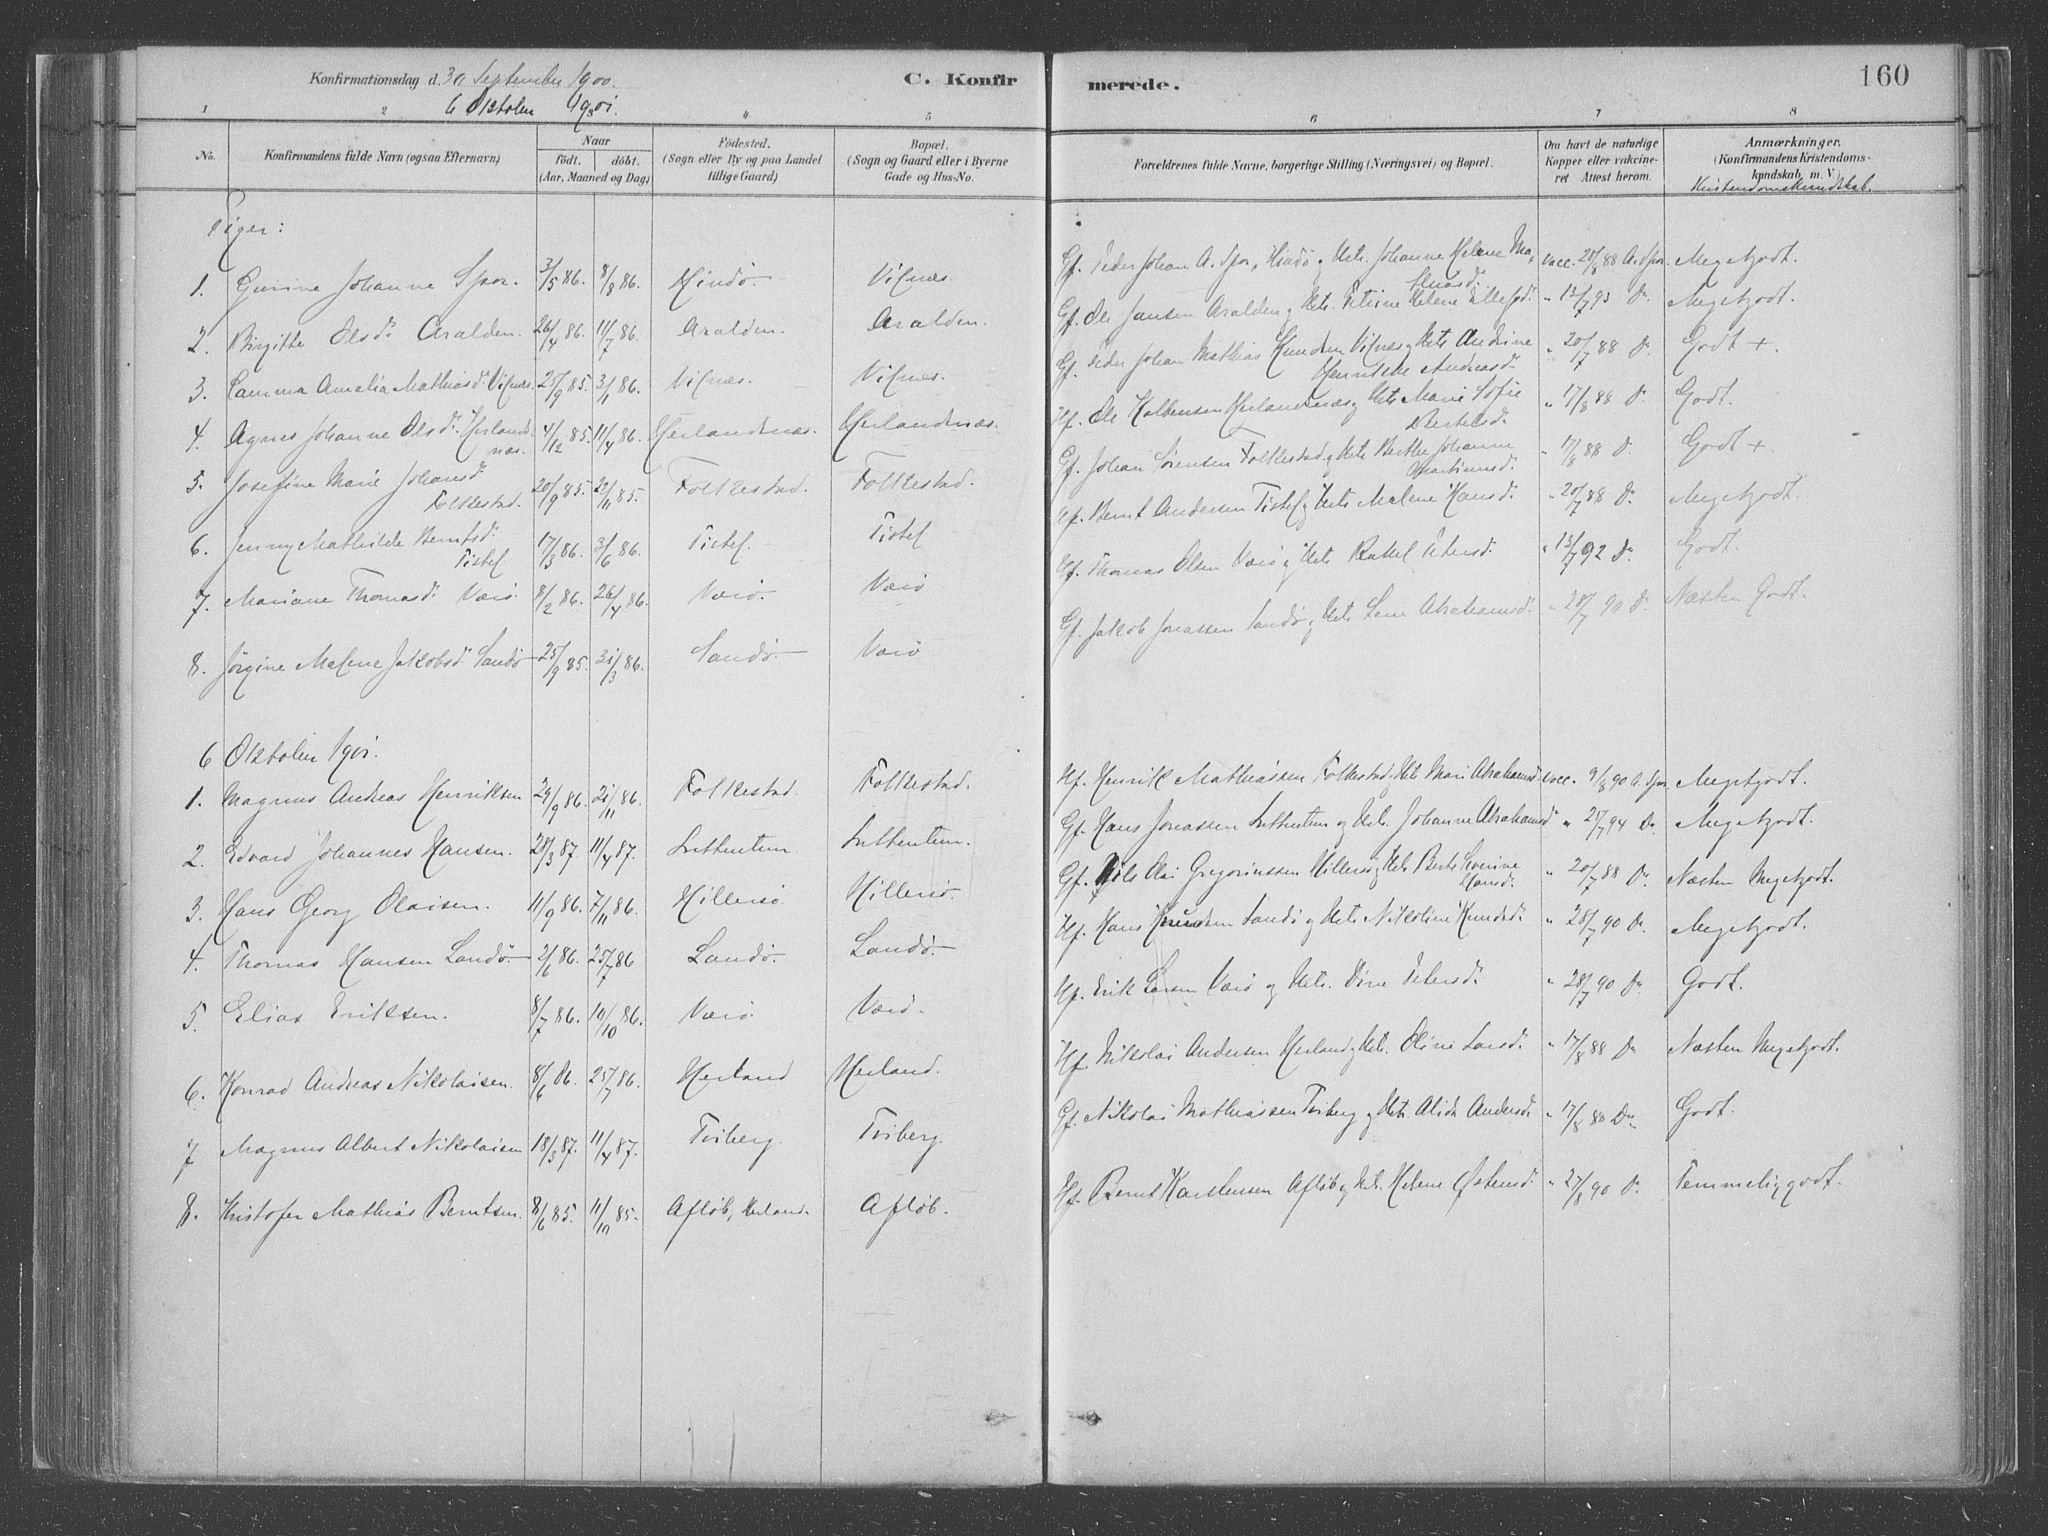 Konfirmationsdag d. 30 September 1900.
6 Oktober 1901.
C. Konfir merede. 160
1 2 3 4 5 6 7 8
No. Konfirmandens fulde Navn (ogsaa Efternavn) Naar födt. döbt. (Aar, Maaned og Dag) Födested. (Sogn eller By og paa Landet tillige Gaard) Bopæl. (Sogn og Gaard eller i Byerne Gade og Hus-No. Forældrenes fulde Navne, borgerlige Stilling (Næringsvei) og Bopæl. Om havt de naturlige Kopper eller vakcineret Attest herom. Anmærkninger. (Konfirmandens Kristendomskundskab, m. V.
Kristendomskundskab.
Piger:
1. Gurine Johanne Spor. 3/5 86. 8/8 86. Hindö. Vilnæs. Gf. Peder Johan A. Spor, Hindö og Hstr. Johanne Helene Vacc. 28/8 88 A. Spor. Megetgodt.
2. Birgitte Olsdr Aralden. 26/4 86. 11/7 86. Aralden. Aralden. Gf. Ole Jansen Aralden og Hstr. Helene " 13/7 93 Do. Megetgodt.
3. Lamma Amalia Mathiasdr. Vilnæs. 25/9 85. 3/1 86. Vilnæs. Vilnæs. Gf. Peder Johan Mathias Knudsen Vilnæs og Hstr Andrine Henrikke Andersdr. " 20/7 88 Do Godt +.
4. Agnes Johanne Olsdr. Herlandsnæs. 4/12 85. 11/4 86. Herlandsnæs. Herlandsnæs. Hf. Ole Kolbensen Herlandsnæs og Hstr Marie Sofie Bertelsdr. " 17/8 88 Do. Godt.
5. Josefine Marie Johansdr Folkestad. 20/9 85. 22/11 85. Folkestad. Folkestad. Gf. Johan Sörensen Folkestad og Hstr Berthe Johanne Martinusdr. " 17/8 88 Do. Godt +
6. Jenny Mathilde Berntsdr. Tistel 17/3 86. 3/6 86. Tistel. Tistel Hf. Bernt Andersen Tistel og Hstr Malene Hansdr. " 20/7 88 Do. Megetgodt.
7. Mariane Thomasdr. Værö. 8/2 86. 26/4 86. Værö. Værö Gf. Thomas Olsen Værö og Hstr Rakel Petersdr. " 13/7 92 Do Godt.
8. Jörgine Malene Jakobsdr. Sandö 25/9 85. 31/3 86. Sandö. Værö Gf. Jakob Jonassen Sandö og Hstr Lene Abrahamsdr. " 28/7 90 Do. Næsten Godt.
6 Oktober 1901.
1. Magnus Andreas Henriksen 29/9 86. 21/11 86. Folkestad. Folkestad. Hf. Henrik Mathiassen Folkestad og Hstr Mari Abrahamsd Vacc. 9/8 90 A. Spor Megetgodt.
2. Edvard Johannes Hansen. 28/3 87. 11/4 87. Sittentem. Sittentem. Gf. Hans Jonassen Sittentem og Hstr. Johanne Abrahamsdr " 27/7 94 Do Megetgodt.
3. Hans Georg Olaisen. 11/9 86. 7/11 86. Hillersö. Hillersö. Gf. Nils Olai Gregoriussen Hillersö og Hstr Berte Severine Hansdr. " 20/7 88 Do Næsten Megetgodt.
4. Thomas Hansen Sandö. 2/6 86. 25/7 86 Sandö. Sandö. Hf. Hans Knudsen Sandö og Hstr Nikoline Knudsdr. " 28/7 90 Do. Megetgodt.
5. Elias Eriksen. 8/7 86. 10/10 86. Værö. Værö. Hf. Erik Larsen Værö og Hstr. Petersdr " 28/7 90 Do Godt.
6. Konrad Andreas Nikolaisen. 8/6 86. 25/7 86. Herland Herland. Hf. Nikolai Andersen Herland og Hstr. Oline Larsdr. " 17/8 88 Do Næsten Megetgodt.
7 Magnus Albert Nikolaisen 18/3 87. 11/4 87. Tviberg. Tviberg. Gf. Nikolai Mathiassen Tviberg og Hstr Alida Andersdr " 17/8 88 Do. Godt.
8. Kristofer Mathias Berntsen. 8/6 85. 11/10 85. Aflöb, Herland. Aflöb. Hf. Bernt Karstensen Aflöb og Hstr. Helene Östensdr. " 27/8 90 Do. Temmelig godt.